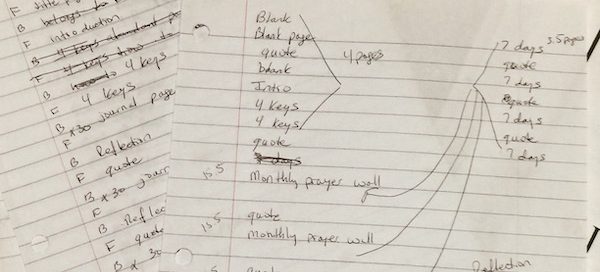 F title page
B belongs to
F introduction
B 4 keys
F 4 keys
B x30 journal page
B Reflection
F quote
B x 30 jour
F
B Reflec
F quote
B x 30
Blank
Blank page
quote
blank
Intro
4 keys
4 keys
quote
7 days
Monthly prayer wall
quote
Monthly prayer wall
quote
4 pages
155
155
7 days
3.5 pages
quote
7 days
quote
7 days
quote
7 days
Reflection